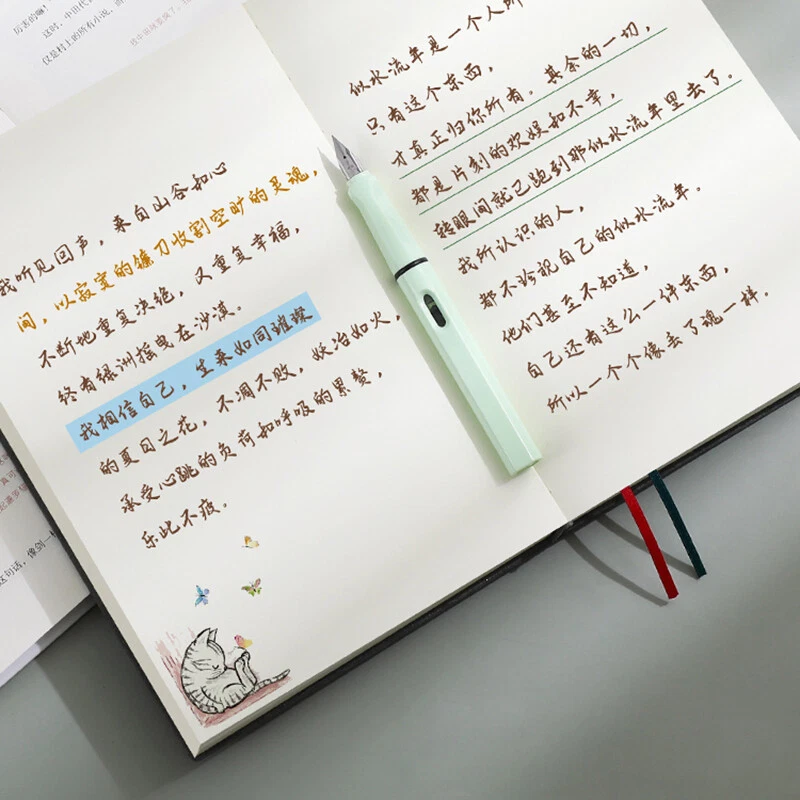 厉害的嘛!
这时,中田代
仅是村上的所有小说,
我听见回声,来自山谷和心
间,以寂寞的镰刀收割空旷的灵魂,
不断地重复决绝,又重复幸福,
终有绿洲摇曳在沙漠。
我相信自己,生来如同璀璨
的夏日之花,不凋不败,妖冶如火,
承受心跳的负荷和呼吸的累赘,
乐此不疲。
似水流年是一个人所
只有这个东西,
才真正归你所有。其余的一切,
都是片刻的欢娱和不幸,
转眼间就已跑到那似水流年里去了。
我所认识的人,
都不珍视自己的似水流年。
他们甚至不知道,
自己还有这么一件东西,
所以一个个像丢了魂一样。
这句话,像剑一